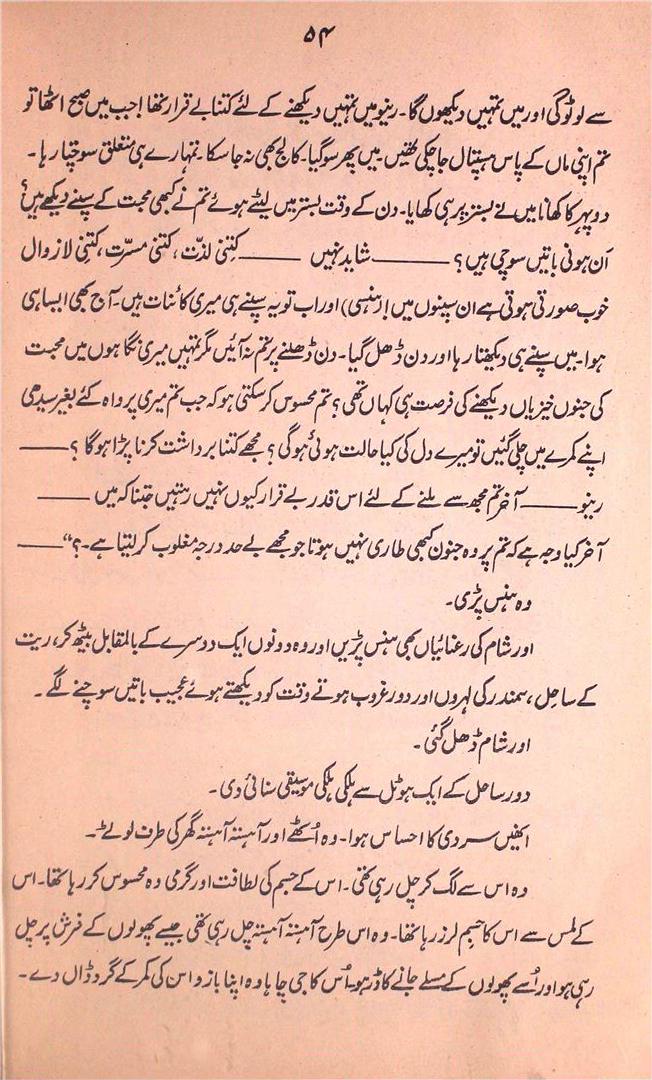 ۵۴
سے لوٹوگی اور میں تمہیں دیکھوں گا۔ رینو میں تمہیں دیکھنے کے لئے کتنا بے قرار تھا! جب میں صبح اٹھا تو
تم اپنی ماں کے پاس ہسپتال جاچکی تھیں۔ میں پھر سوگیا۔ کالج بھی نہ جاسکا۔ تمہارے ہی متعلق سوچتا رہا۔
دوپہر کا کھانا میں نے بستر پر ہی کھایا۔ دن کے وقت بستر میں لیٹے ہوئے تم نے کبھی محبت کے سپنے دیکھے ہیں؟
اَن ہونی باتیں سوچی ہیں؟ ——— شاید نہیں ——— کتنی لذّت، کتنی مسرّت، کتنی لازوال
خوب صورتی ہوتی ہے ان سپنوں میں! (ہنسی) اور اب تو یہ سپنے ہی میری کائنات ہیں۔ آج بھی ایسا ہی
ہوا۔ میں سپنے ہی دیکھتا رہا اور دن ڈھل گیا۔ دن ڈھلنے پر تم نہ آئیں مگر تمہیں میری نگاہوں میں محبت
کی جنوں خیزیاں دیکھنے کی فرصت ہی کہاں تھی؟ تم محسوس کرسکتی ہو کہ جب تم میری پرواہ کئے بغیر سیدھی
اپنے کمرے میں چلی گئیں تو میرے دل کی کیا حالت ہوئی ہوگی؟ مجھے کتنا برداشت کرنا پڑا ہوگا؟ ———
رینو ——— آخر تم مجھ سے ملنے کے لئے اس قدر بے قرار کیوں نہیں رہتیں جتنا کہ میں ———
آخر کیا وجہ ہے کہ تم پر وہ جنون کبھی طاری نہیں ہوتا جو مجھے بے حد درجہ مغلوب کر لیتا ہے۔؟“ ———
وہ ہنس پڑی۔
اور شام کی رعنائیاں بھی ہنس پڑیں اور وہ دونوں ایک دوسرے کے بالمقابل بیٹھ کر، ریت
کے ساحل، سمندر کی لہروں اور دور غروب ہوتے وقت کو دیکھتے ہوئے عجیب باتیں سوچنے لگے۔
اور شام ڈھل گئی۔
دور ساحل کے ایک ہوٹل سے ہلکی ہلکی موسیقی سنائی دی۔
انھیں سردی کا احساس ہوا۔ وہ اُٹھے اور آہستہ آہستہ گھر کی طرف لوٹے۔
وہ اس سے لگ کر چل رہی تھی۔ اس کے جسم کی لطافت اور گرمی وہ محسوس کر رہا تھا۔ اس
کے لمس سے اس کا جسم لرز رہا تھا۔ وہ اس طرح آہستہ آہستہ چل رہی تھی جیسے پھولوں کے فرش پر چل
رہی ہو اور اُسے پھولوں کے مسلے جانے کا ڈر ہو۔ اُس کا جی چاہا وہ اپنا بازو اس کی کمر کے گرد ڈال دے۔